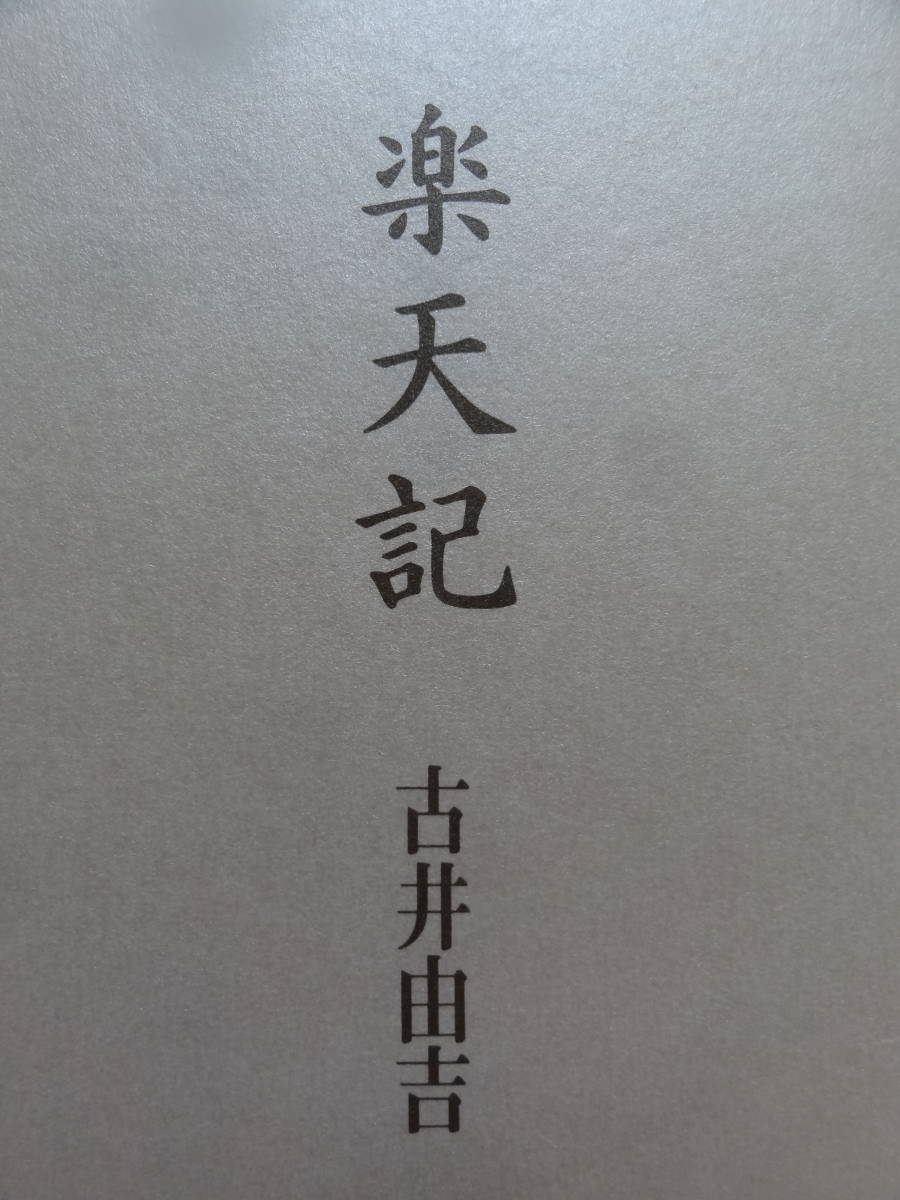 楽天記
古井由吉